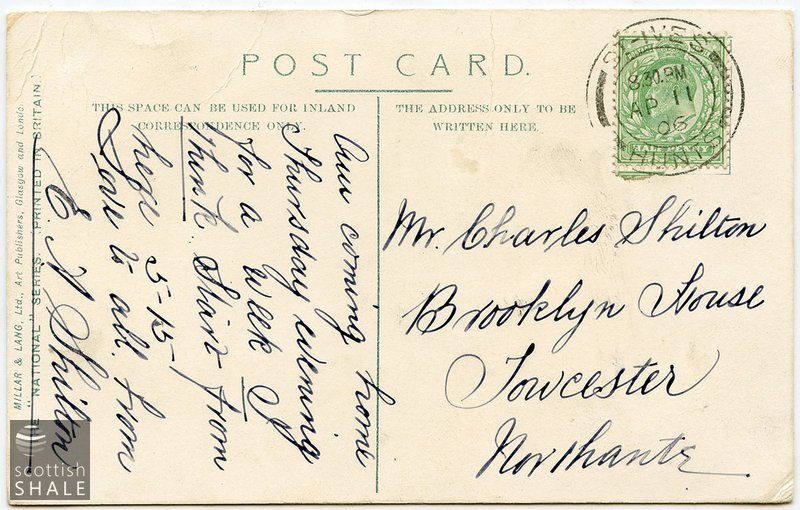 POST CARD.
THIS SPACE CAN BE USED FOR INLAND
CORRESPONDENCE ONLY.
THE ADDRESS ONLY TO BE
WRITTEN HERE.
ST-IVES
8.30 PM
AP 11
06
HUNTS
HALF PENNY
Am coming home
Thursday evening
for a week I
think. Start from
here 5-15,
Love to all from
E A Shilton
Mr. Charles Shilton
Brooklyn House
Towcester
Northants
THE "NATIONAL" SERIES. PRINTED IN BRITAIN.
MILLAR & LANG, Ltd., Art Publishers, Glasgow and London.
scottish
SHALE